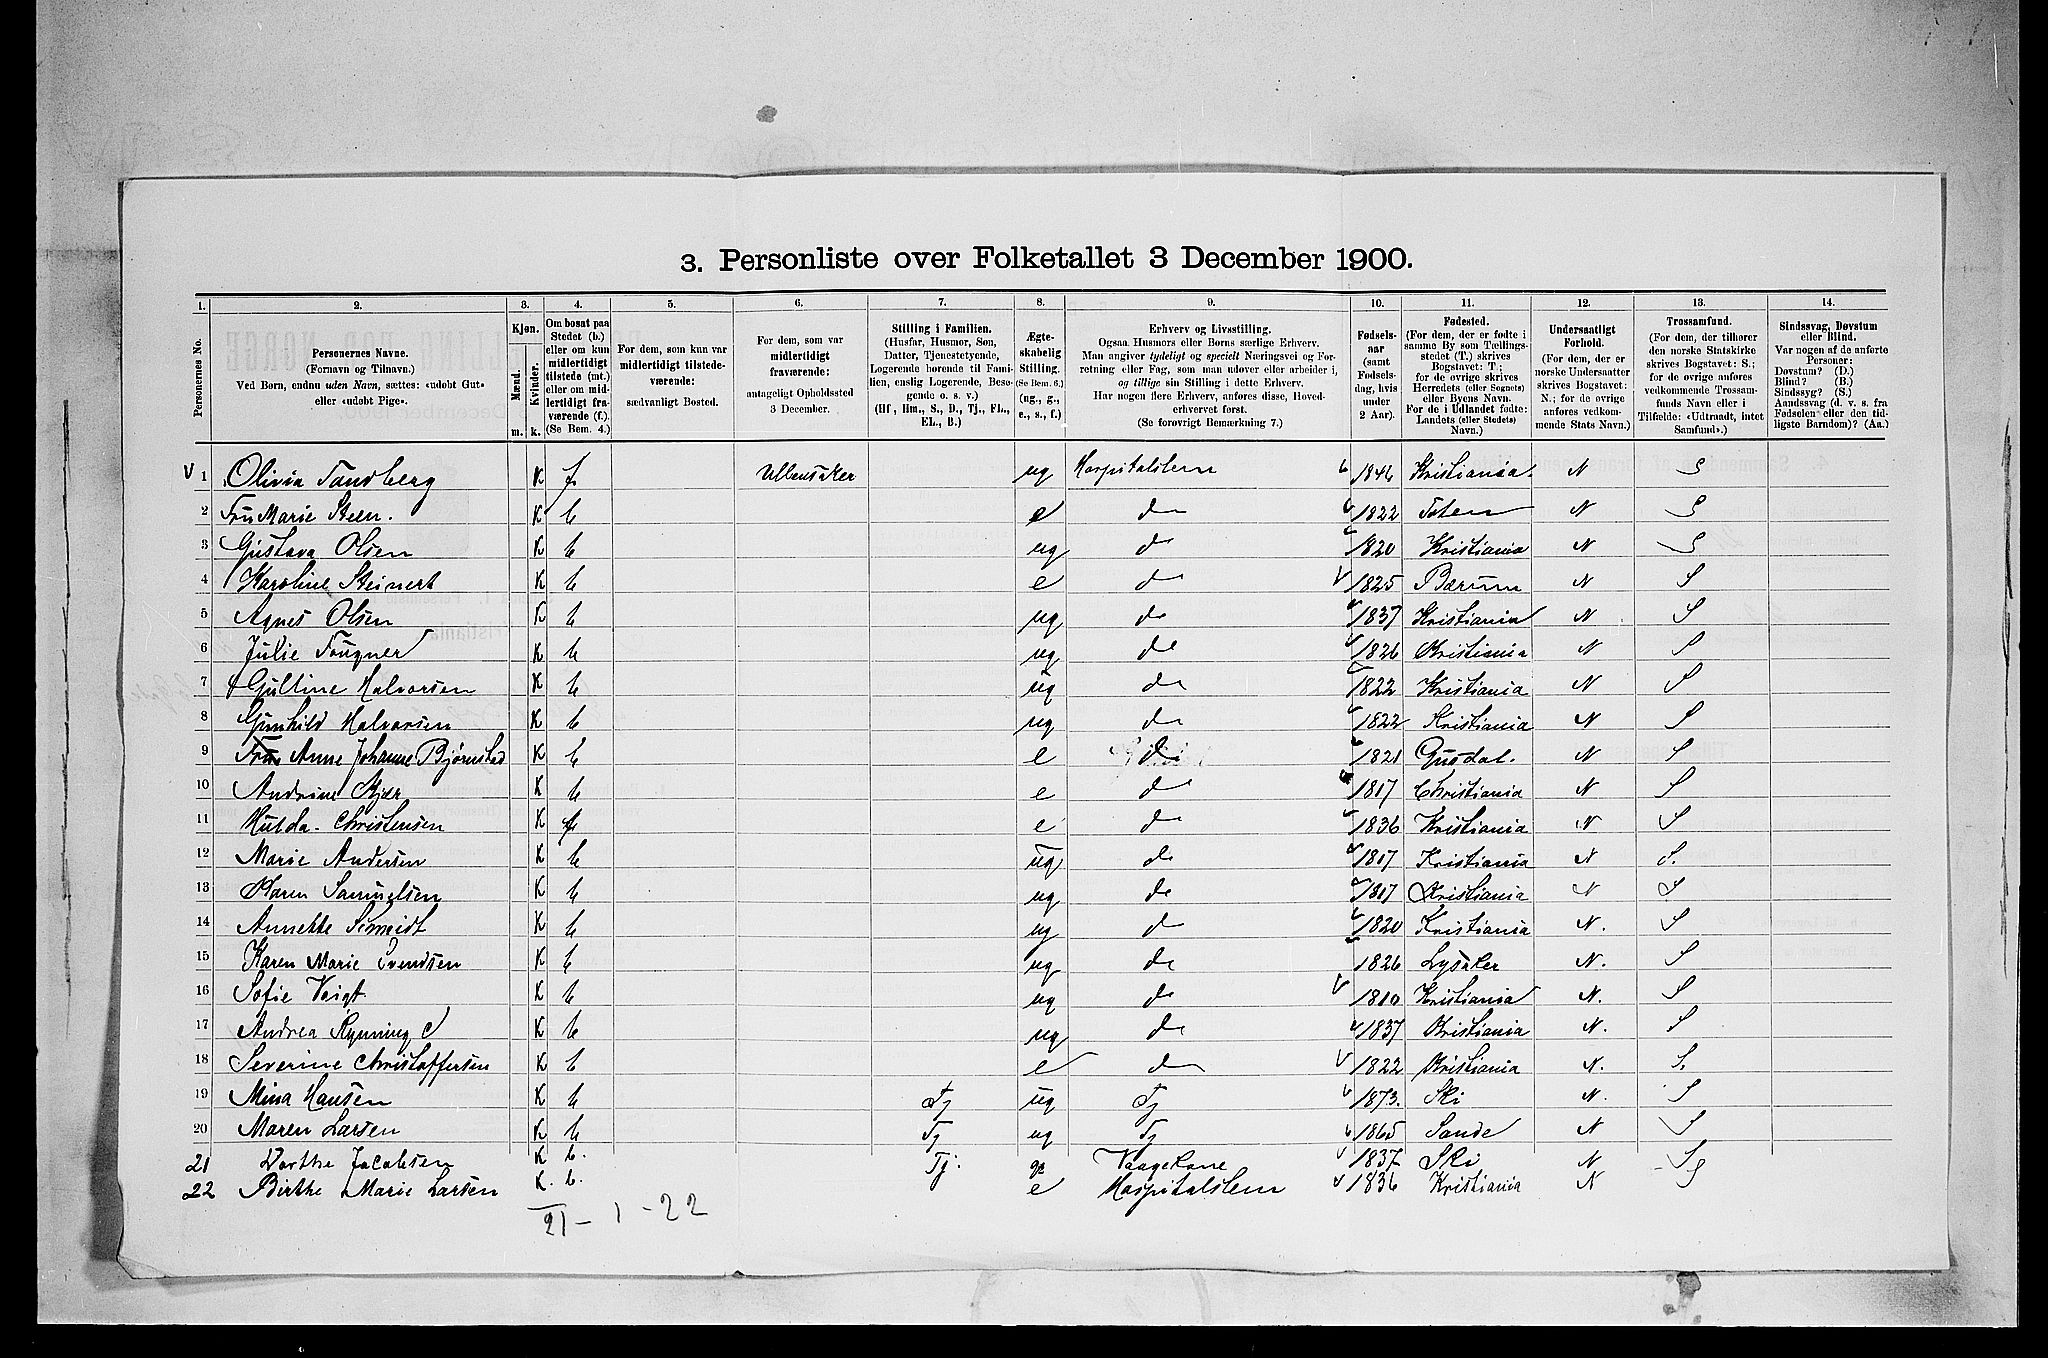 3. Personliste over Folketallet 3 December 1900.
1. 2. 3. 4. 5. 6. 7. 8. 9. 10. 11. 12. 13. 14.
Personernes No.
Personernes Navne.
(Fornavn og Tilnavn.)
Ved Børn, endnu uden Navn, sættes: «udøbt Gut»
eller «udøbt Pige».
Kjøn.
Mænd. Kvinder.
m. k.
Om bosat paa
Stedet (b.)
eller om kun
midlertidigt
tilstede (mt.)
eller om mid-
lertidigt fra-
værende (f.).
(Se Bem. 4.)
For dem, som kun var
midlertidigt tilstede-
værende:
sædvanligt Bosted.
For dem, som var
midlertidigt
fraværende:
antageligt Opholdssted
3 December.
Stilling i Familien.
(Husfar, Husmor, Søn,
Datter, Tjenestetyende,
Logerende hørende til Fami-
lien, enslig Logerende, Besø-
gende o. s. v.)
(Hf, Hm., S., D., Tj., FL.,
EL., B.)
Ægte-
skabelig
Stilling.
(Se Bem. 6.)
(ug., g.,
e., s., f.)
Erhverv og Livsstilling.
Ogsaa Husmors eller Børns særlige Erhverv.
Man angiver tydeligt og specielt Næringsvei og For-
retning eller Fag, som man udøver eller arbeider i,
og tillige sin Stilling i dette Erhverv.
Har nogen flere Erhverv, anføres disse, Hoved-
erhvervet først.
(Se forøvrigt Bemærkning 7.)
Fødsels-
aar
(samt
Fødsels-
dag, hvis
under
2 Aar).
Fødested.
(For dem, der er fødte i
samme By som Tællings-
stedet (T.) skrives
Bogstavet: T;
for de øvrige skrives
Herredets (eller Sognets)
eller Byens Navn.
For de i Udlandet fødte:
Landets (eller Stedets)
Navn.)
Undersaatligt
Forhold.
(For dem, der er
norske Undersaatter
skrives Bogstavet:
N.; for de øvrige
anføres vedkom-
mende Stats Navn.)
Trossamfund.
(For dem, der tilhører
den norske Statskirke
skrives Bogstavet: S.;
for de øvrige anføres
vedkommende Trossam-
funds Navn eller i
Tilfælde: «Udtraadt, intet
Samfund».)
Sindssvag, Døvstum
eller Blind.
Var nogen af de anførte
Personer:
Døvstum? (D.)
Blind? (B.)
Sindssyg? (S.)
Aandssvag (d. v. s. fra
Fødselen eller den tid-
ligste Barndom)? (Aa.)
1 Olivia Sandberg K f. Ullensaker ug Hospitalslem 1846 Kristiania. N S
2 Fru Marie Steen. K b e do 1822 Toten N S
3 Gustava Olsen K b ug do 1820 Kristiania N S
4 Karoline Steinert K b e do 1825 Bærum N S
5 Agnes Olsen K b ug do 1837 Kristiania N S
6 Julie Fougner K b ug do 1826 Kristiania N S
7 Gulline Halvorsen K b ug do 1822 Kristiania N S
8 Gunhild Halvorsen K b ug do 1822 Kristiania N S
9 Fru Anne Johanne Bjørnstad K b e do 1821 Gusdal. N S
10 Andrine K b e do 1817 Christiania N S
11 Hulda Christensen K f e do 1836 Kristiania N S
12 Marie Andersen K b ug do 1817 Kristiania N S.
13 Karen Samuelsen K b ug do 1817 Kristiania N S
14 Annette Schmidt K b ug do 1820 Kristiania N. S
15 Karen Marie Svendsen K b ug do 1826 Lysaker N. S
16 Sofie Voigt K b ug do 1810 Kristiania N. S
17 Andrea Rynning K b ug do 1837 Kristiania N. S
18 Severine Christoffersen K b e do 1822 Kristiania N. S.
19 Mina Hansen K b Tj ug Tj 1873. Ski N. S
20 Maren Larsen K b Tj ug Tj 1865 Sande N S
21 Dorthe Jacobsen K b. Tj. Vaagekone 1837 Ski N S
22 Birthe Marie Larsen K. b. e Hospitalslem 1836 Kristiania N S
21 - 1 - 22